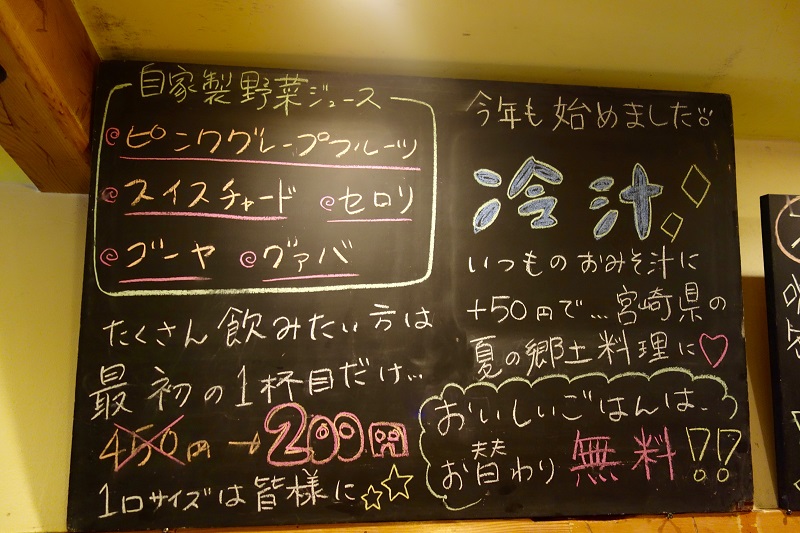 自家製野菜ジュース
ピンクグレープフルーツ
スイスチャード セロリ
ゴーヤ グァバ
たくさん飲みたい方は
最初の1杯目だけ…
450円→200円
1口サイズは皆様に
今年も始めました
冷汁
いつものおみそ汁に
+50円で…宮崎県の
夏の郷土料理に♡
おいしいごはんは、
お替わり無料!!